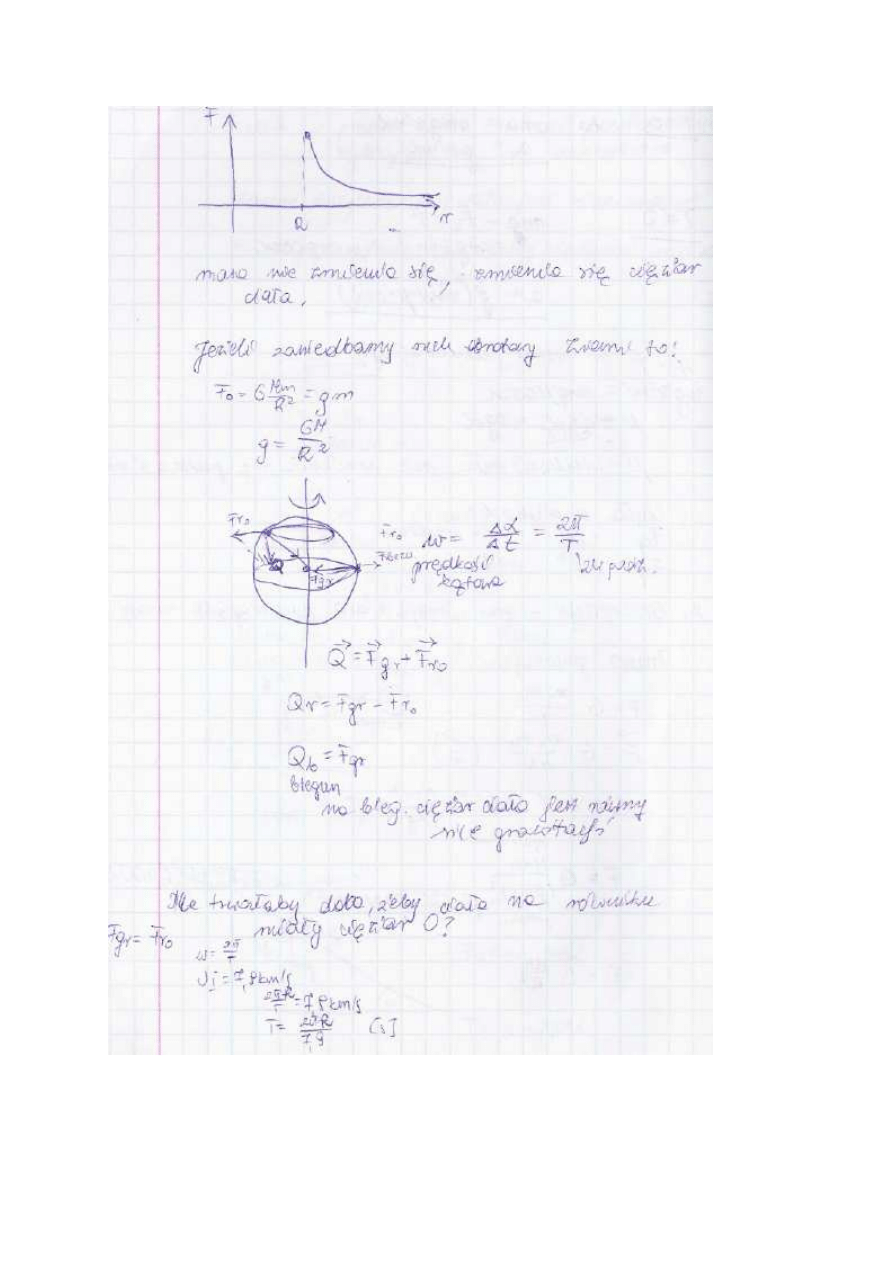 F
R
r
masa nie zmienia się, zmienia się ciężar
ciała,
Jeżeli zaniedbamy ruch obrotowy Ziemi to:
F₀ = G Mm/R² = gm
g = GM/R²
Fr₀
Q
Fgr
Fr₀
ω = Δα/Δt = 2π/T
prędkość
kątowa
Q⃗ = F⃗gr + F⃗r₀
Qr = Fgr - Fr₀
Qb = Fgr
biegun
na bieg. ciężar ciała jest równy
sile grawitacji
Ile trwałaby doba, żeby ciała na równiku
miały ciężar 0?
Fgr = Fr₀
ω = 2π/T
υI = 7,9km/s
2πR/T = 7,9km/s
T = 2πR/7,9 [s]